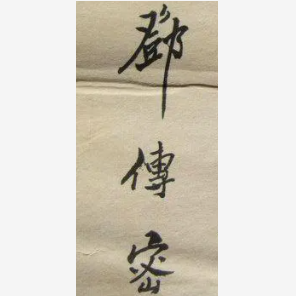 鄧傳密